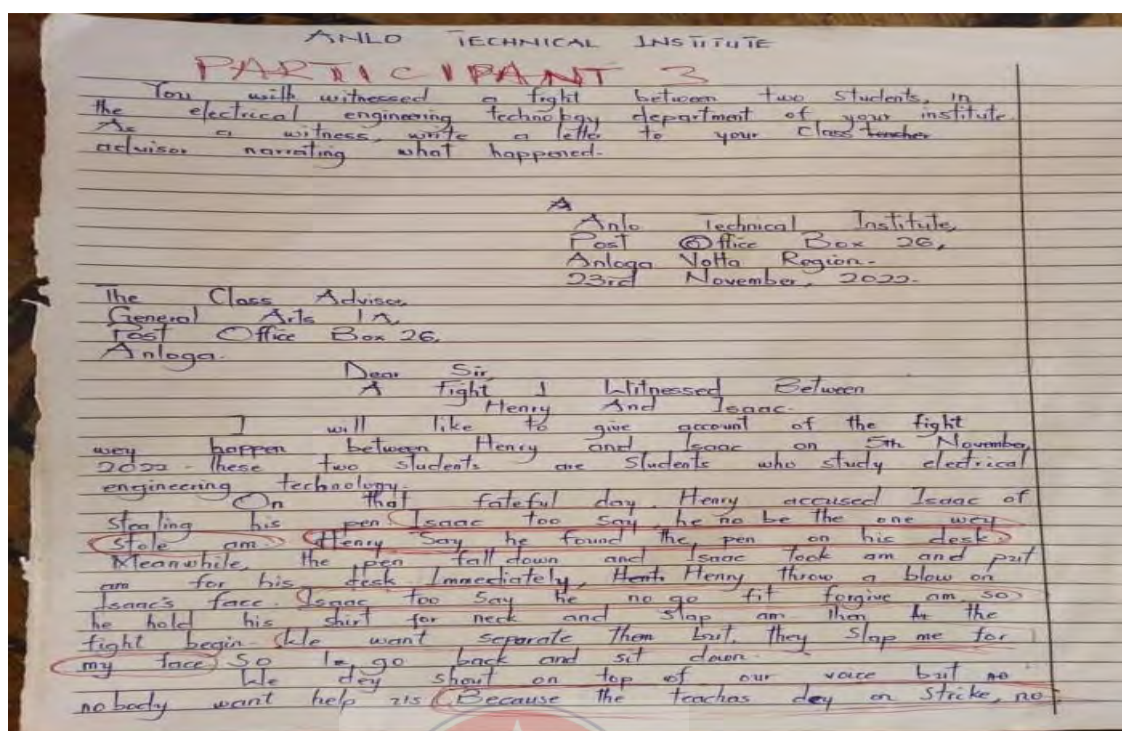 ANLO TECHNICAL INSTITUTE
PARTICIPANT 3
You with witnessed a fight between two students, in
the electrical engineering technology department of your institute.
As a witness, write a letter to your class teacher
advisor narrating what happened.
A
Anlo Technical Institute,
Post Office Box 26,
Anloga Volta Region.
23rd November, 2022.
The Class Advisor
General Arts 1A
Post Office Box 26,
Anloga.
Dear Sir
A Fight I Witnessed Between
Henry And Isaac.
I will like to give account of the fight
wey happen between Henry and Isaac on 5th November,
2022. These two students are students who study electrical
engineering technology.
On that fateful day, Henry accused Isaac of
stealing his pen. Isaac too say, he no be the one wey
stole am. Henry say he found the pen on his desk.
Meanwhile, the pen fall down and Isaac took am and put
am for his desk. Immediately, Henry throw a blow on
Isaac's face. Isaac too say he no go fit forgive am, so
he hold his shirt for neck and slap am then the
fight begin. We want separate them but, they slap me for
my face. So I go back and sit down.
We dey shout on top of our voice but no
nobody want help us. Because the teachas dey on strike, no